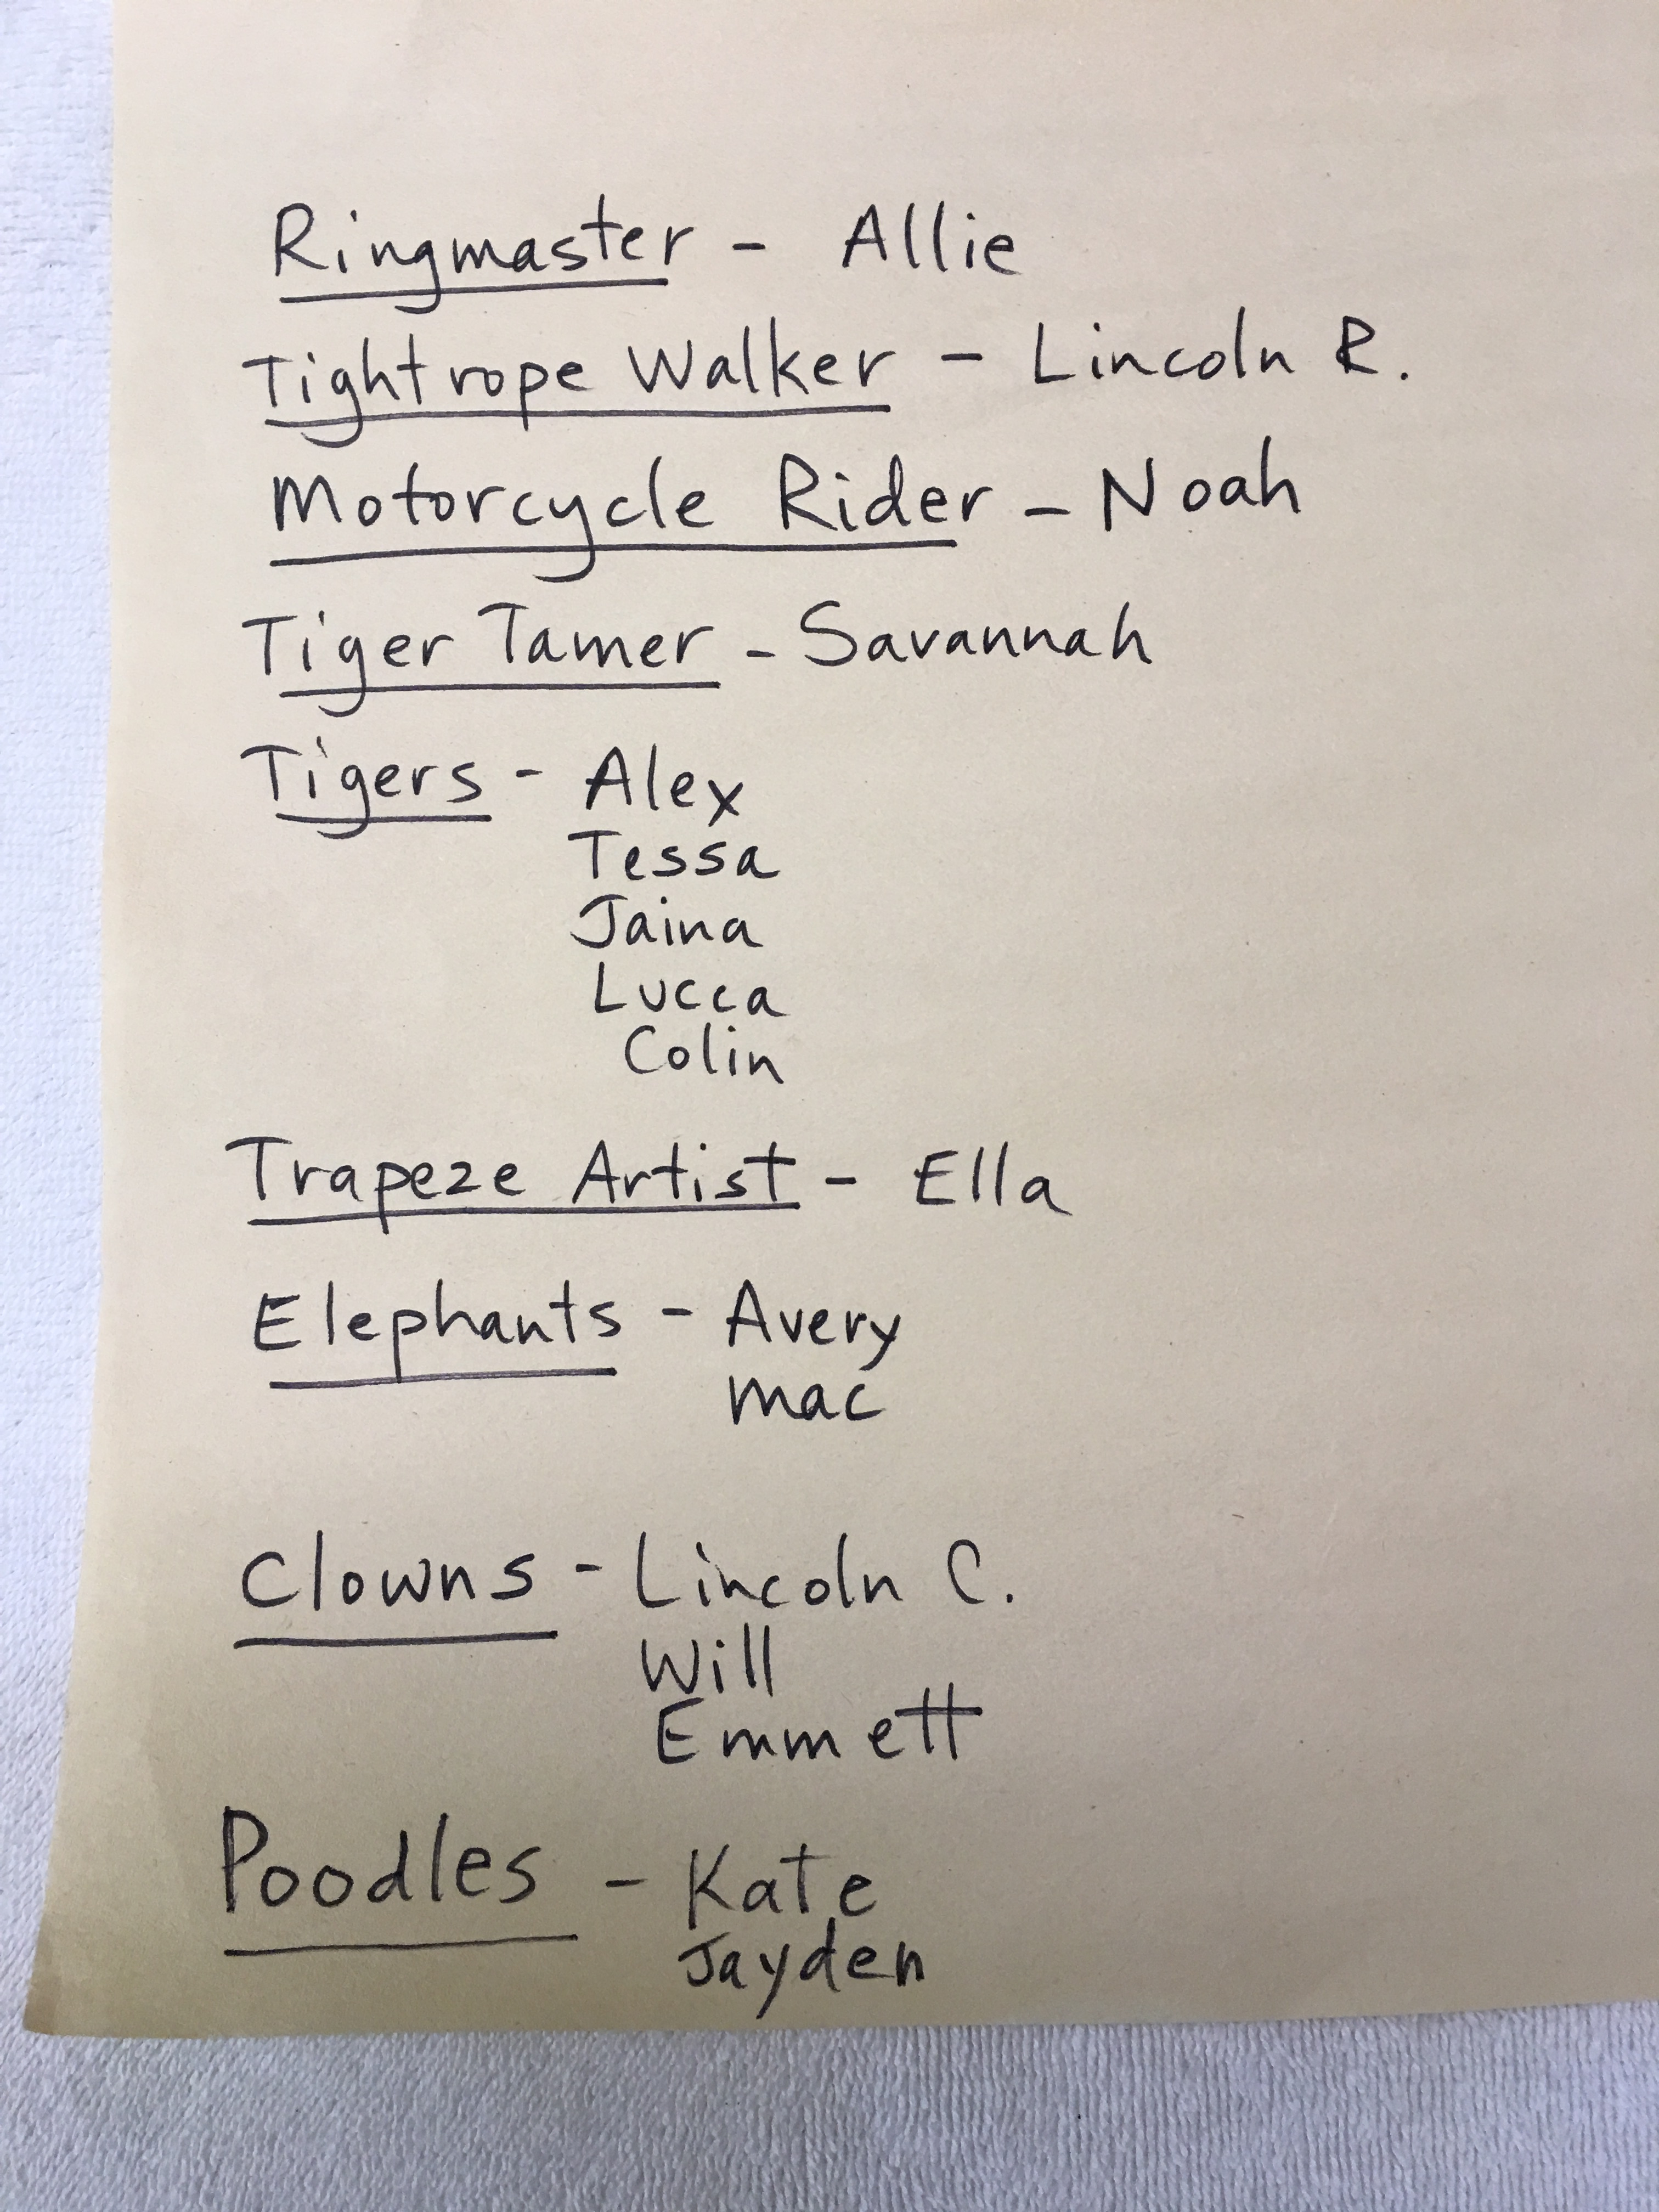 Ringmaster - Allie
Tightrope Walker - Lincoln R.
Motorcycle Rider - Noah
Tiger Tamer - Savannah
Tigers - Alex
Tessa
Jaina
Lucca
Colin
Trapeze Artist - Ella
Elephants - Avery
Mac
Clowns - Lincoln C.
Will
Emmett
Poodles - Kate
Jayden